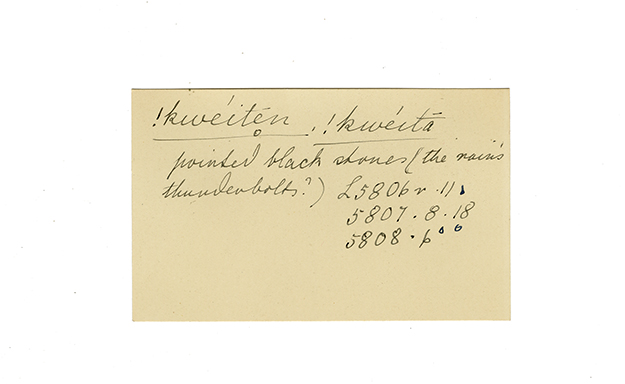 !kwéitẹn, !kwéitā
pointed black stones (the rain's
thunderbolts?) L5806 r. 11,
5807. 8. 18
5808. 6